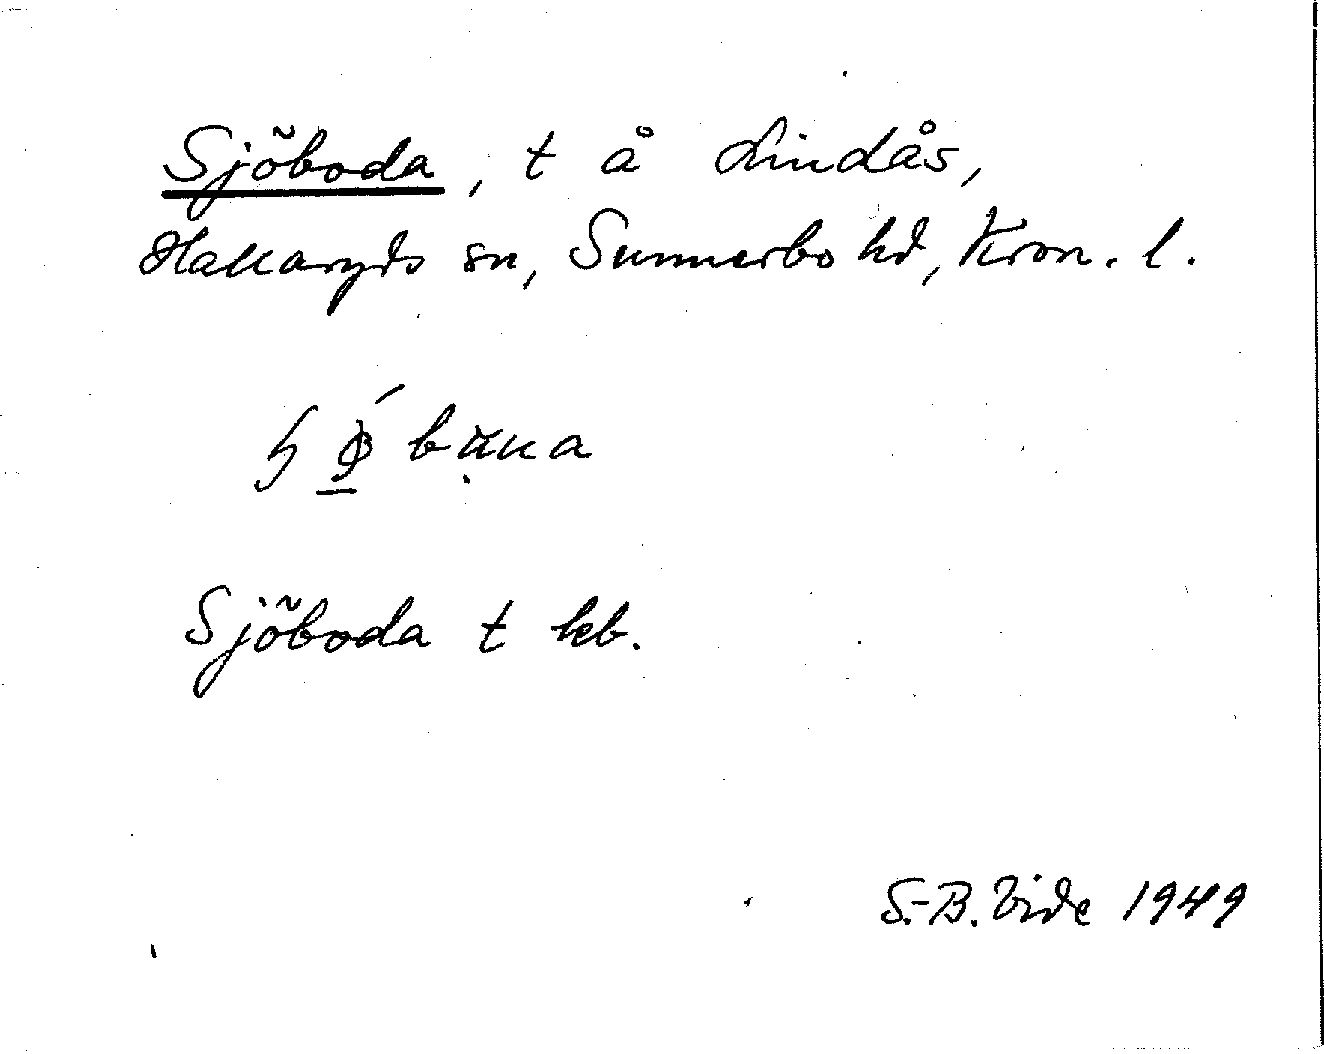 Sjöboda, t å Lindås,
Hallaryds sn, Sunnerbo hd, Kron. l.
Sjöboda t kb.
S.-B. Vide 1949